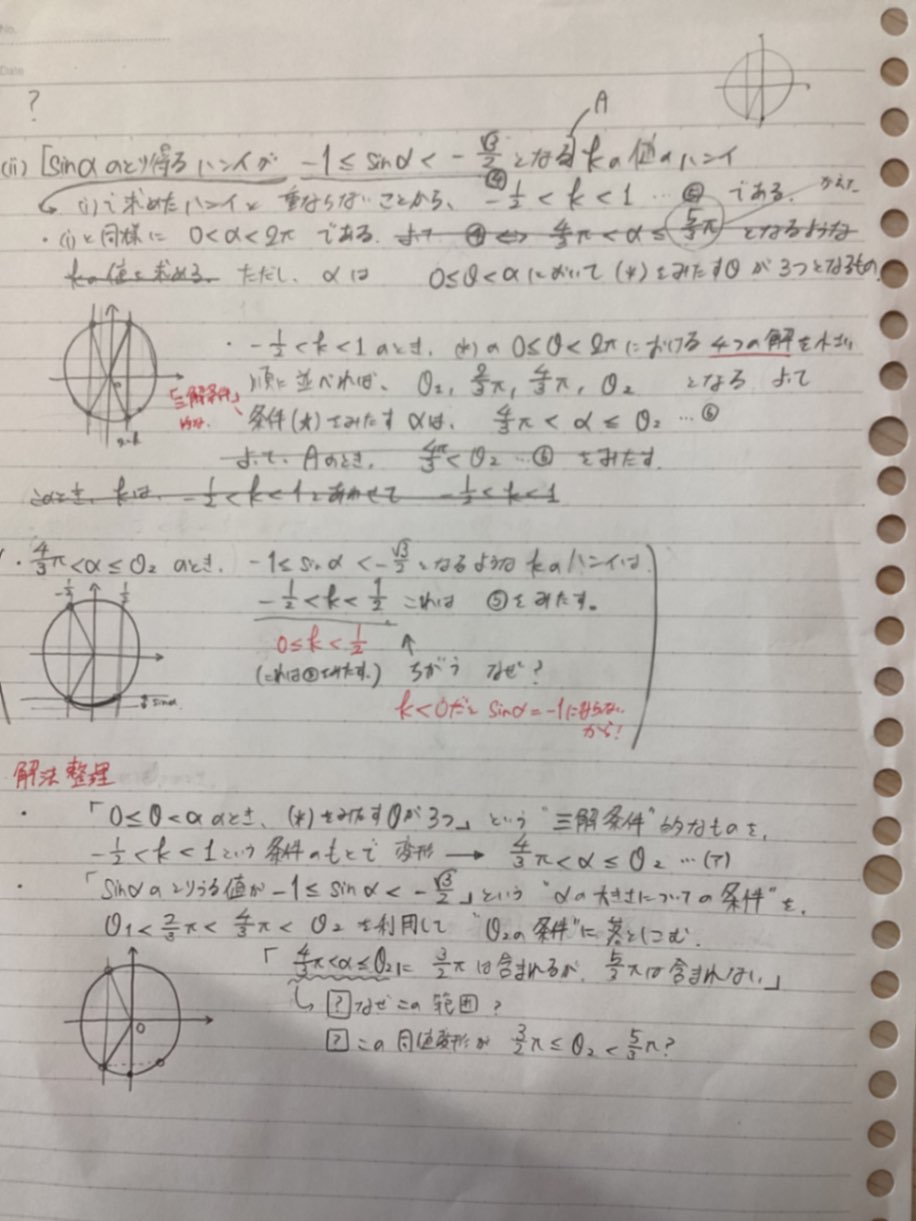 No.
Date
?
A
(ii) [sinαのとり得るハンイが -1≤sinα<-√3/2 となる]kの値のハンイ
④
(i)で求めたハンイと重ならないことから、 -1/2<k<1 …⑤ である。
・(i)と同様に 0<α<2πである. よって ④⇔ 4/3π<α≤5/3π となるような
kの値を求める. ただし、αは 0≤θ<αにおいて(*)をみたすθが3つとなるもの
・-1/2<k<1のとき、(*)の0≤θ<2πにおける4つの解を小さい
順に並べれば、θ₂, 2/3π, 4/3π, θ₂ となる よって
「三解条件」
的な.
条件(*)をみたすαは、 4/3π<α≤θ₂ …⑥
よって、Aのとき、 4π/3<θ₂ …⑥ をみたす.
このとき、kは、-1/2<k<1とあわせて -1/2<k<1
・4/3π<α≤θ₂のとき、 -1≤sinα<-√3/2となるようなkのハンイは
-1/2 1/2
-1/2<k<1/2 これは ⑤をみたす。
0≤k<1/2 ↑
(これは⑤をみたす.) ちがう なぜ?
sinα
k<0だと sinα=-1にならない
から!
解法整理
・「0≤θ<αのとき、(*)をみたすθが3つ」という"三解条件"的なものを、
-1/2<k<1という条件のもとで変形 → 4/3π<α≤θ₂ …(ア)
・「sinαのとりうる値が-1≤sinα<-√3/2」という"αの大きさについての条件"を、
θ₁<2/3π<4/3π<θ₂を利用して"θ₂の条件"に落としこむ.
「4/3π<α≤θ₂に 3/2πは含まれるが、5/3πは含まれない」
?なぜこの範囲?
O
?この同値変形が 3/2π≤θ₂<5/3π?